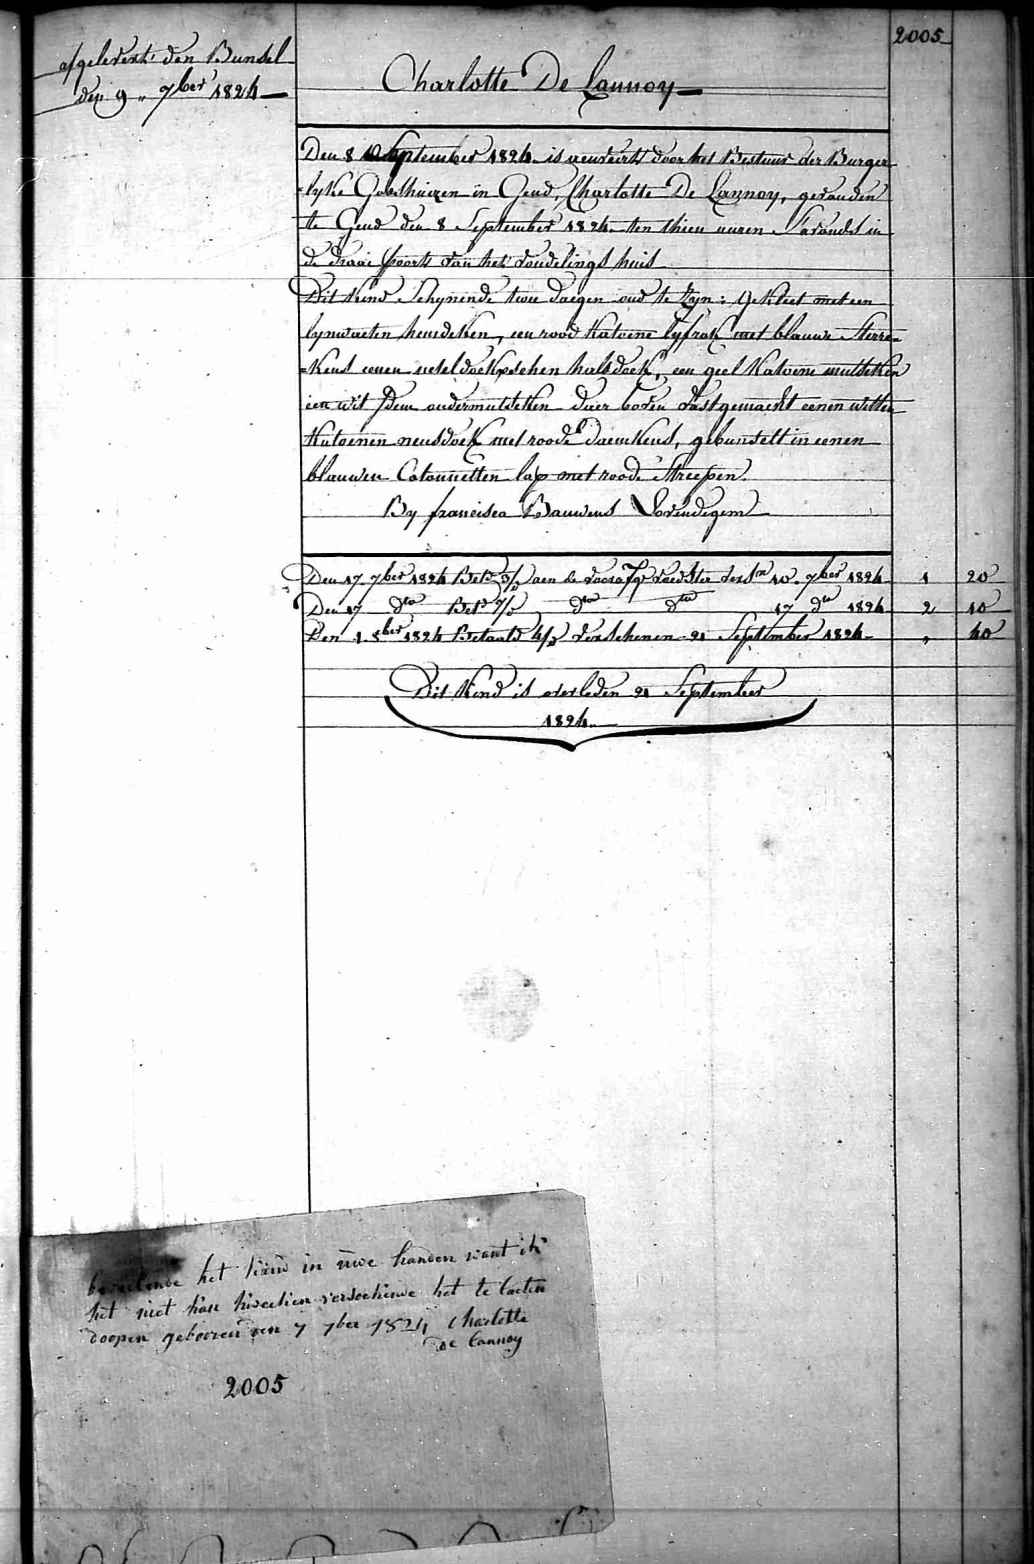 2005
afgelevert den Bundel
den 9 „ 7ber 1824
Charlotte De Lannoy
Den 8 September 1824 is aenveirt door het Bestuur der Burger-
-lyke Godshuizen in Gend, Charlotte De Lannoy, gevonden
te Gend den 8 September 1824 ten thien uuren S'avonds in
de draai poorte van het vondelings huis
Dit Kind Schynende twee daegen oud te Zyn: Gekleet met een
lynwaeten hemdeken, een rood Katoene lyfrok met blauwe Sterre-
-kens eenen neteldoekschen halsdoek, een geel Katoene mutseken
een wit Idem ondermutseken daer boven vastgemaekt eenen witten
Katoenen neusdoek met roode daemkens, gebunselt in eenen
blauwen Cotonnetten lap met roode Streepen.
By francisca Bauwens Lovendegem
Den 17 7ber 1824 Bet. aen de voedster 10 7ber 1824 1 20
Den 17 dto Bet. dto dto 17 dto 1824 2 10
Den 1 8ber 1824 Betaald verschenen 21 September 1824 „ 40
Dit Kind is overleden 21 September
1824
het kind in uwe handen want ik
het niet kan kweeken versoekinde het te laeten
doopen gebooren den 7 7ber 1824 Charlotte
de Lannoy
2005